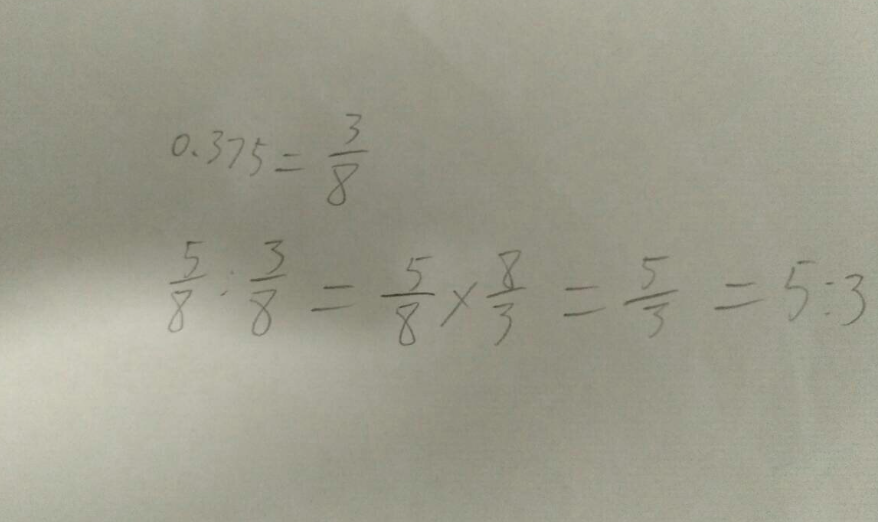 0.375 = 3/8
5/8 : 3/8 = 5/8 × 8/3 = 5/3 = 5:3